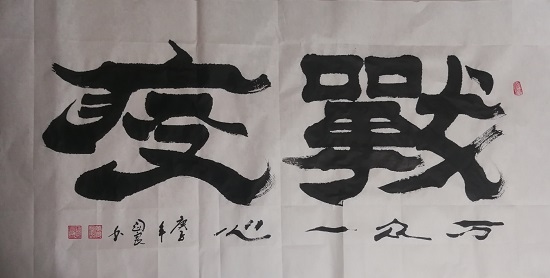 戰疫
万众一心
庚子年
书